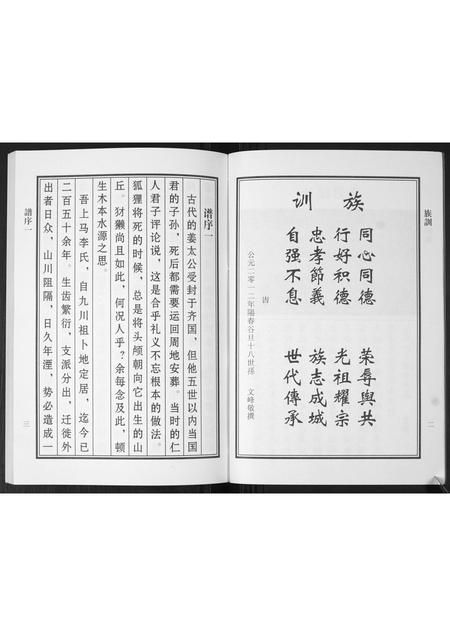 族訓
二
族训
同心同德 荣辱與共
行好积德 光祖耀宗
忠孝節義 族志成城
自强不息 世代傳承
公元二零一二年陽春谷旦十八世孫 文峰敬撰
譜序一
古代的姜太公受封于齐国，但他五世以内当国
君的子孙，死后都需要运回周地安葬。当时的仁
人君子评论说，这是合乎礼义不忘根本的做法。
狐狸将死的时候，总是将头颅朝向它出生的山
丘。豺獭尚且如此，何况人乎？余每念及此，顿
生木本水源之思。
吾上马李氏，自九川祖卜地定居，迄今已
二百五十余年。生齿繁衍，支派分出，迁徙外
出者日众，山川阻隔，日久年湮，势必造成一
譜序一
三